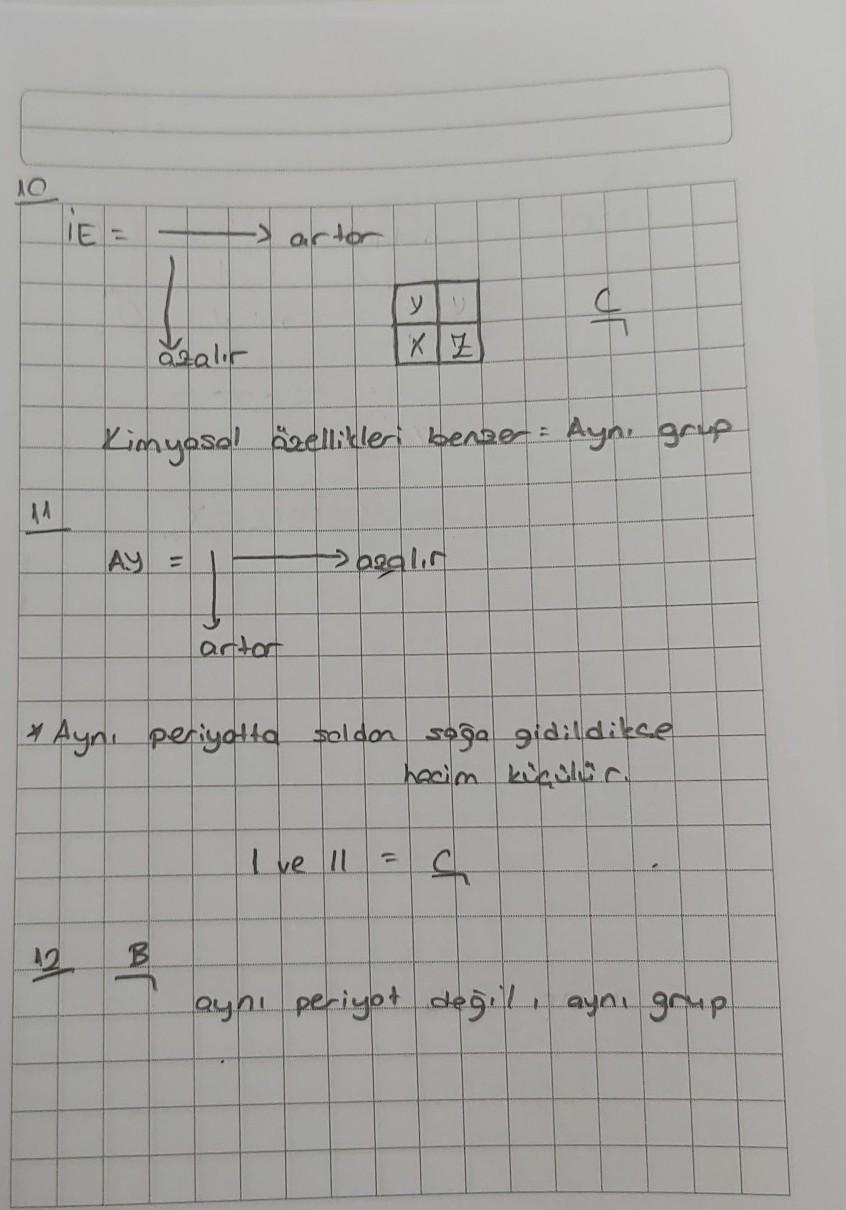 10
İE = → artar
↓
azalır
Y
X Z
C
Kimyasal özellikleri benzer = Aynı grup
11
AY = ↓ → azalır
artar
* Aynı periyotta soldan sağa gidildikçe
hacim küçülür.
I ve II = C
12 B
aynı periyot değil, aynı grup